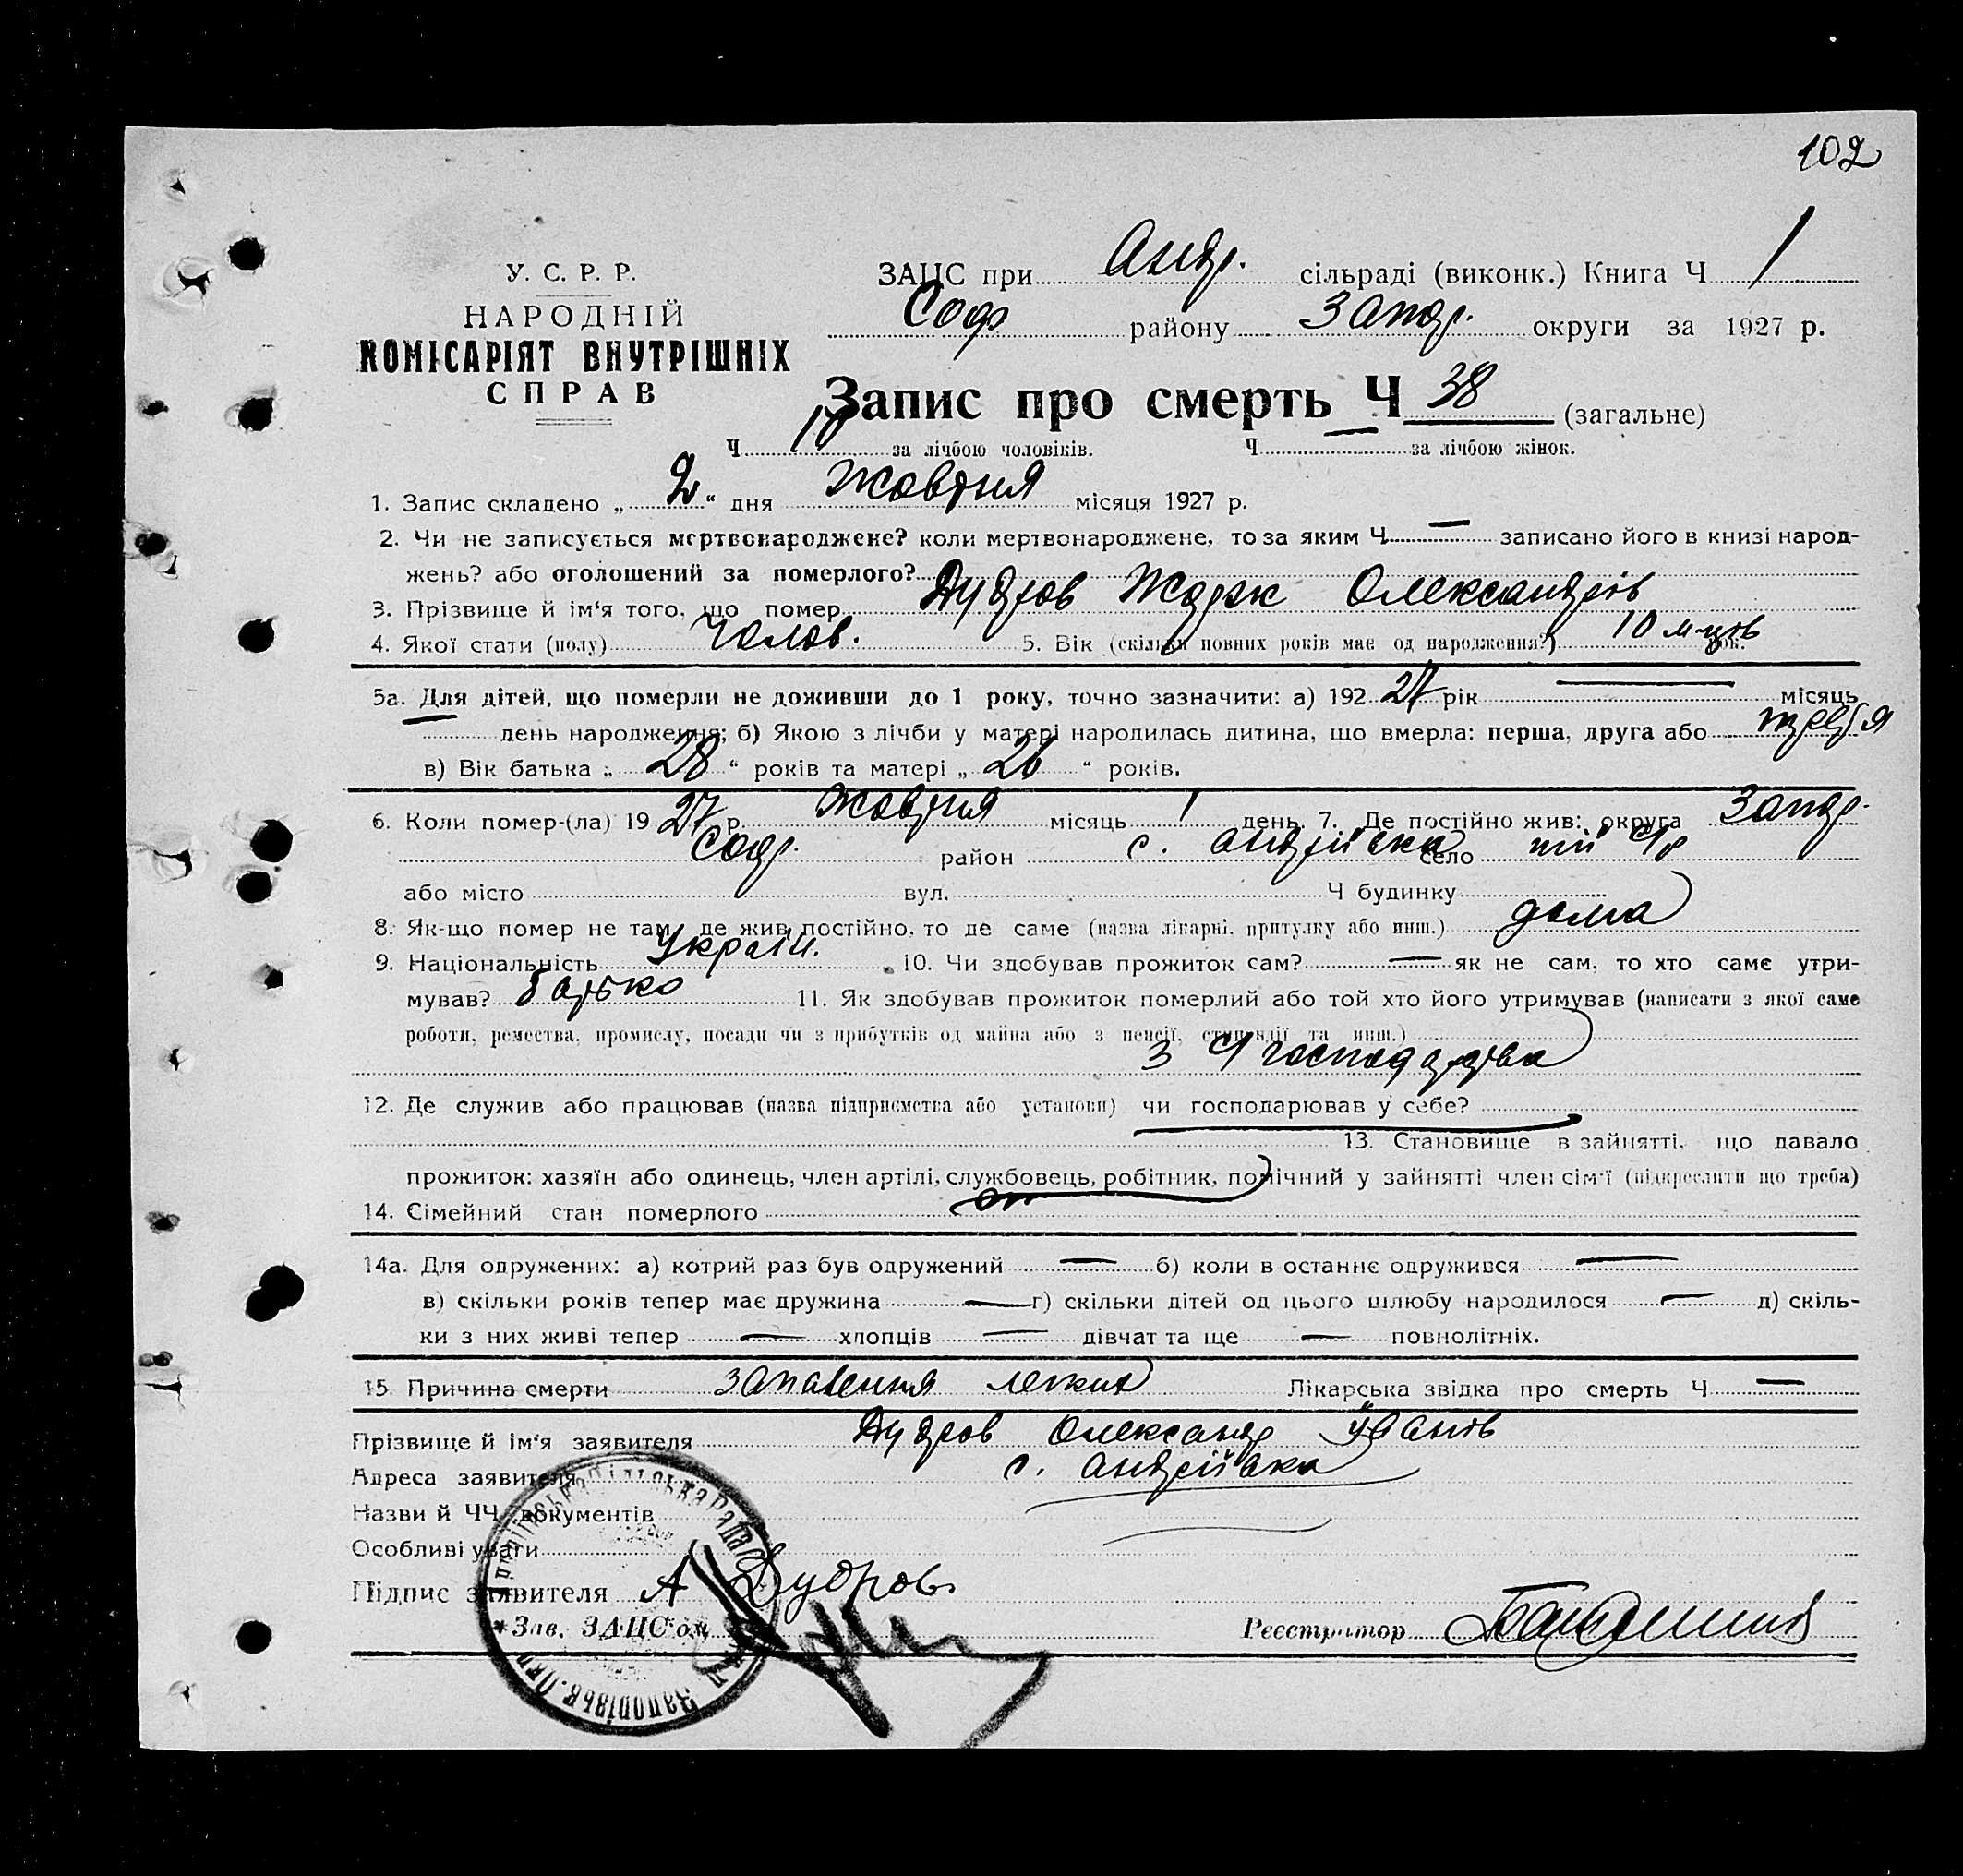 102
У. С. Р. Р.
НАРОДНІЙ
КОМІСАРІЯТ ВНУТРІШНІХ
СПРАВ
ЗАЦС при Андр. сільраді (виконк.) Книга Ч 1
Соф району Запор. округи за 1927 р.
Запис про смерть Ч 38 (загальне)
Ч за лічбою чоловіків. Ч — за лічбою жінок.
1. Запис складено „ 2 “ дня Жовтня місяця 1927 р.
2. Чи не записується мертвонароджене? коли мертвонароджене, то за яким Ч. — записано його в книзі народ-
жень? або оголошений за померлого?
3. Прізвище й ім‘я того, що помер Дудров Жорж Олександрів
4. Якої стати (полу) Чолов. 5. Вік (скільки повних років має од народження?) 10 м-ців рок.
5а. Для дітей, що померли не доживши до 1 року, точно зазначити: а) 192 27 рік — місяць
— день народження; б) Якою з лічби у матері народилась дитина, що вмерла: перша, друга або третя
в) Вік батька „ 28 “ років та матері „ 26 “ років.
6. Коли помер-(ла) 19 27 р. жовтня місяць 1 день. 7. Де постійно жив: округа Запор.
Соф. район с. Андріївка село
або місто вул. Ч будинку
8. Як-що помер не там, де жив постійно, то де саме (назва лікарні, притулку або инш.) дома
9. Національність Україн. 10. Чи здобував прожиток сам? — як не сам, то хто саме утри-
мував? батько 11. Як здобував прожиток померлий або той хто його утримував (написати з якої саме
роботи, ремества, промислу, посади чи з прибутків од майна або з пенсії, стипендії та инш.)
з с/господарства
12. Де служив або працював (назва підприємства або установи) чи господарював у себе?
13. Становище в зайнятті, що давало
прожиток: хазяїн або одинець, член артілі, службовець, робітник, помічний у зайнятті член сім‘ї (підкреслити що треба)
14. Сімейний стан померлого
14а. Для одружених: а) котрий раз був одружений — б) коли в останнє одружився —
в) скільки років тепер має дружина — г) скільки дітей од цього шлюбу народилося — д) скіль-
ки з них живі тепер — хлопців — дівчат та ще — повнолітніх.
15. Причина смерти запалення легких Лікарська звідка про смерть Ч —
Прізвище й ім‘я заявителя Дудров Олександр Іванів
Адреса заявителя с. Андріївка
Назви й ЧЧ документів
Особливі уваги
Підпис заявителя А Дудров
Зав. ЗАЦС‘ом Реєстратор